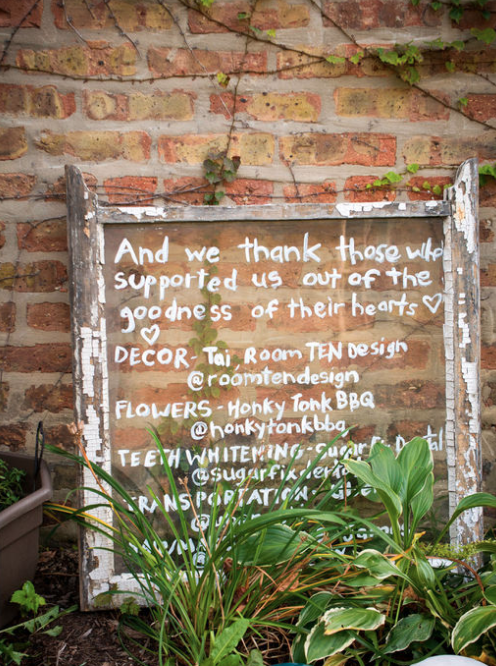 And we thank those who
supported us out of the
goodness of their hearts ♡
♡
DECOR - Tai, Room TEN Design
@roomtendesign
FLOWERS - Honky Tonk BBQ
@honkytonkbbq
TEETH WHITENING - Sugar
@sugarfix
TRANSPORTATION -